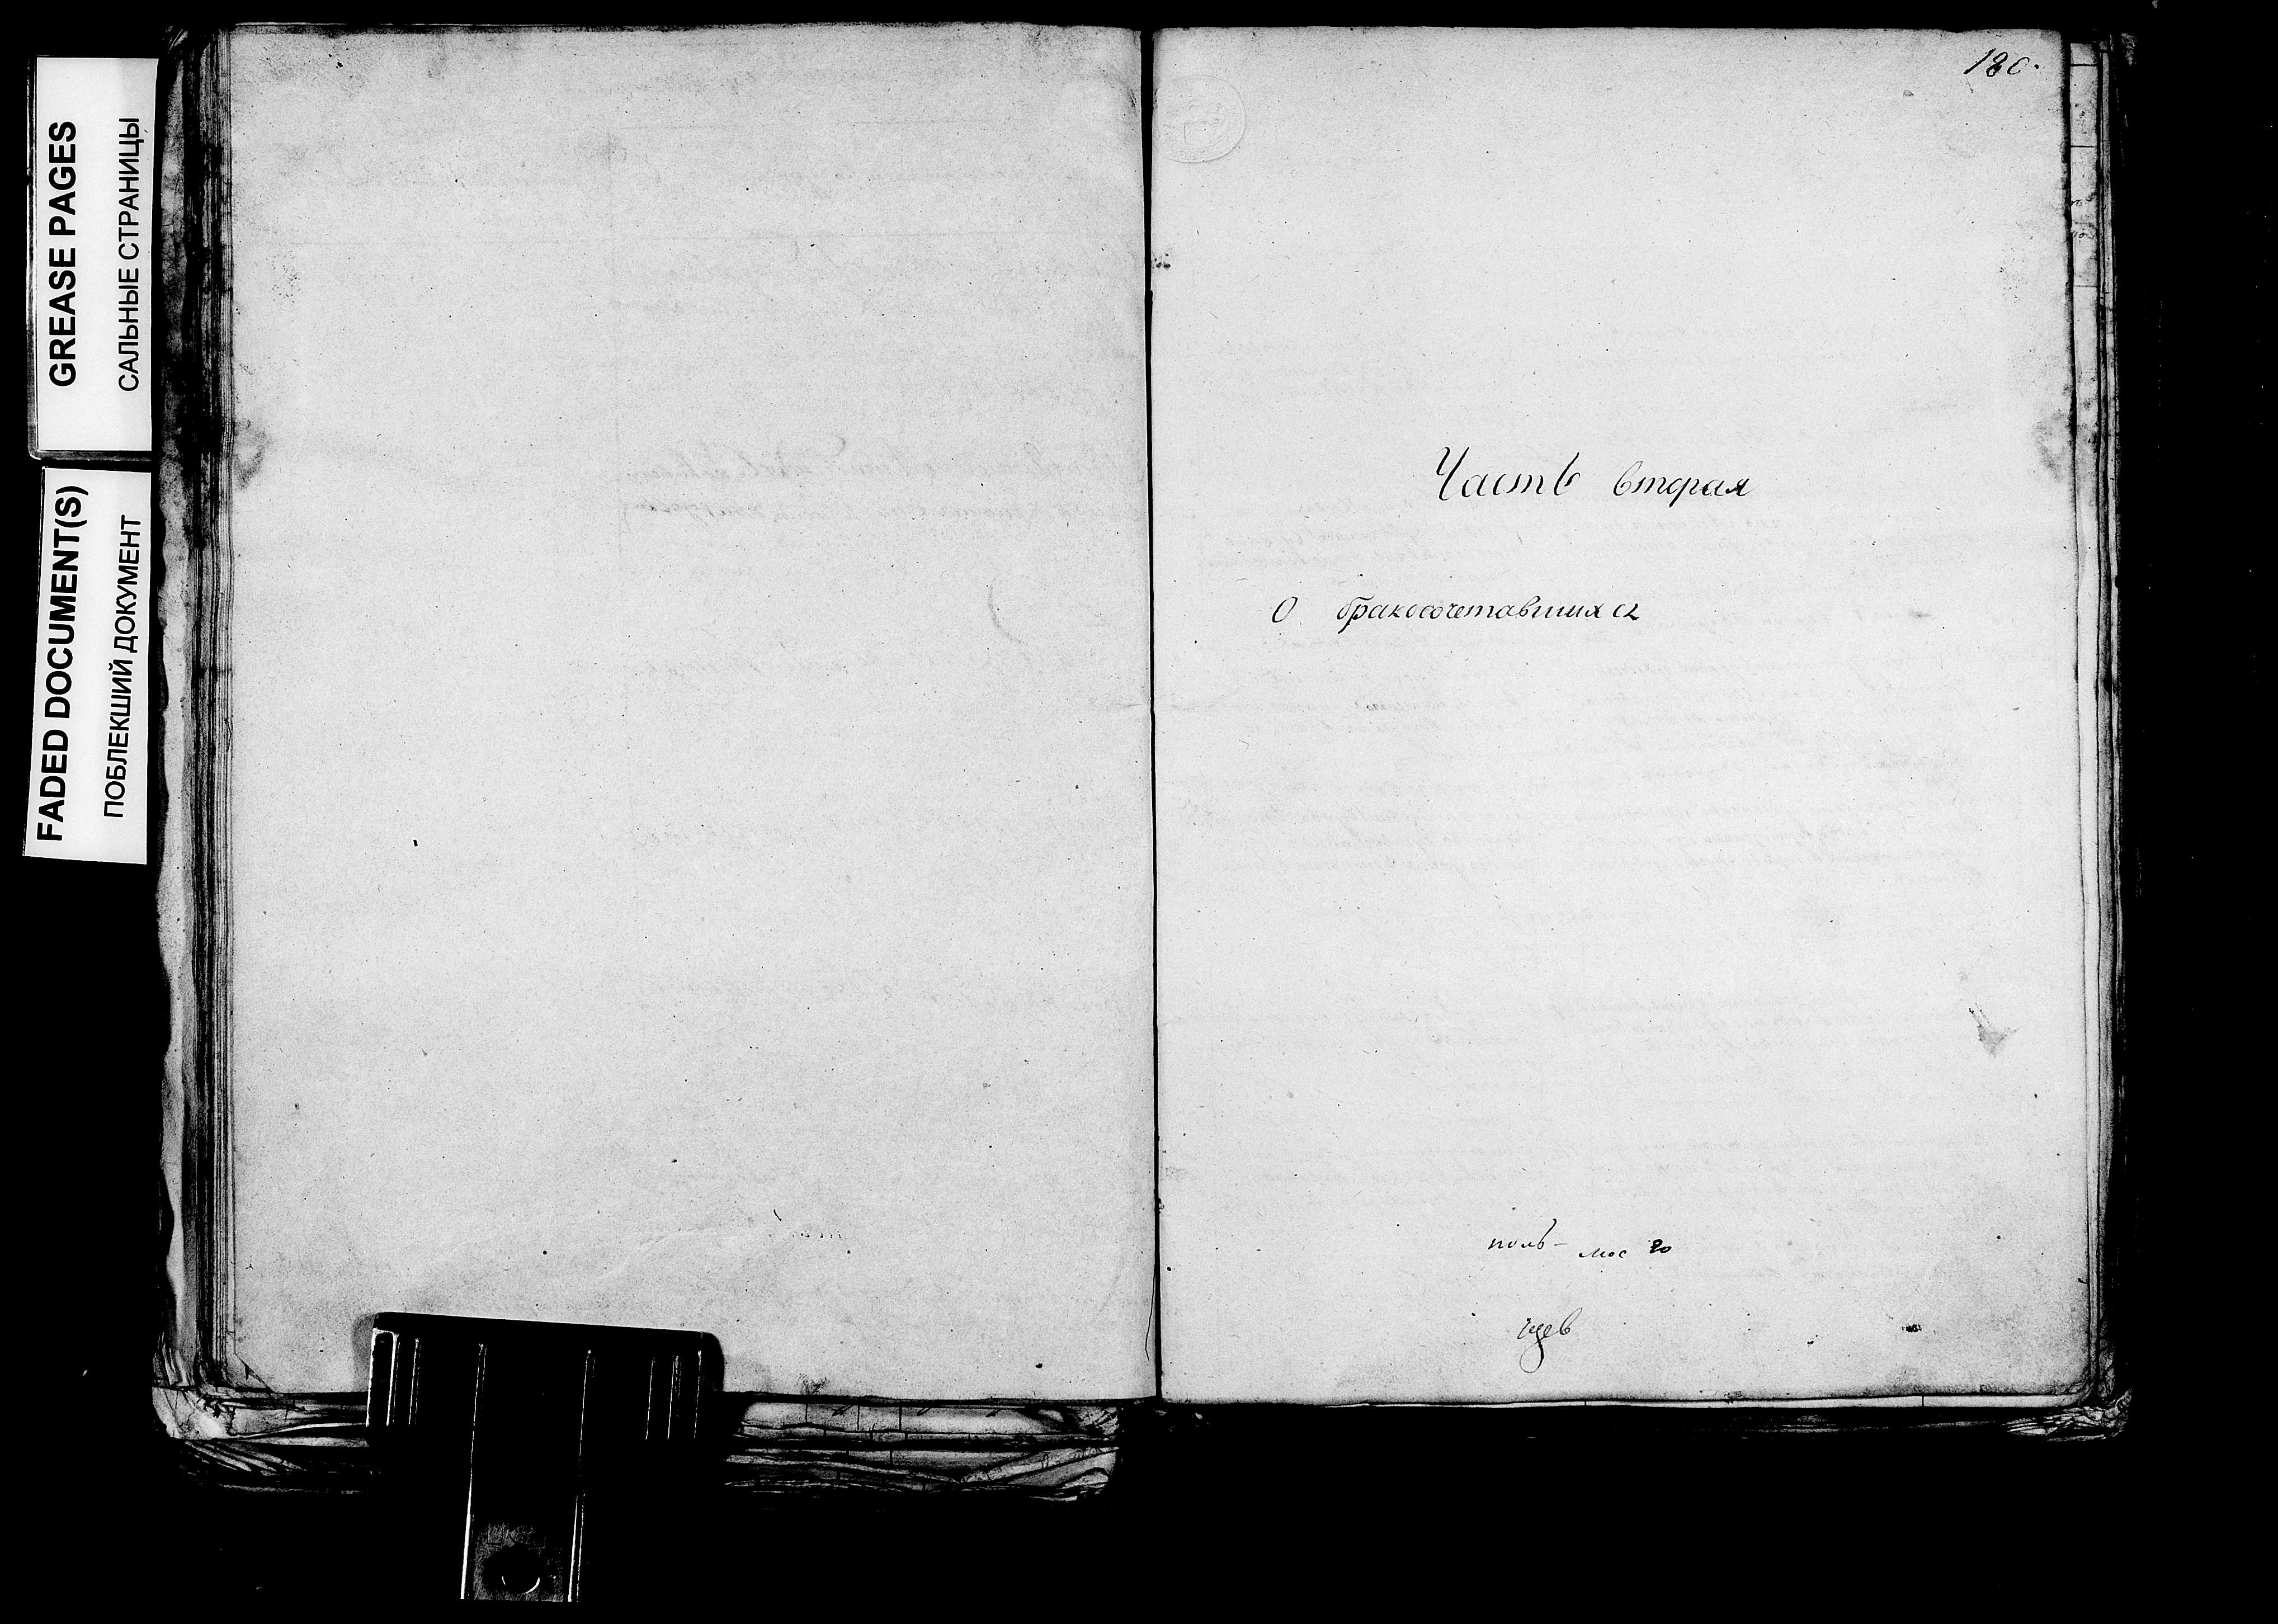 GREASE PAGES
САЛЬНЫЕ СТРАНИЦЫ
FADED DOCUMENT(S)
ПОБЛЕКШИЙ ДОКУМЕНТ
180.
Часть вторая
О бракосочетавшихся